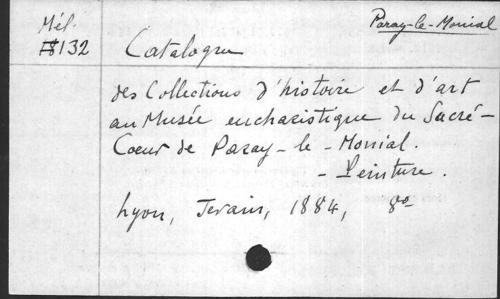 Mél. Paray-le-Monial
8132 Catalogue
des Collections d'histoire et d'art
au Musée eucharistique du Sacré-
Coeur de Paray-le-Monial.
- Peinture.
Lyon, 1884, 8º